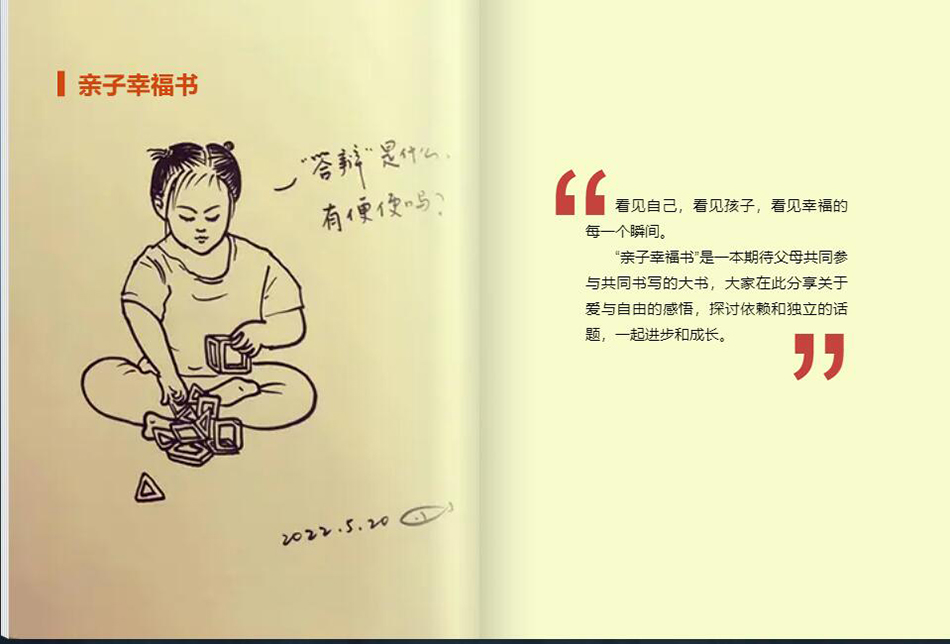 亲子幸福书
“答辩”是什么.
有便便吗?
2022.5.20
“看见自己，看见孩子，看见幸福的
每一个瞬间。
“亲子幸福书”是一本期待父母共同参
与共同书写的大书，大家在此分享关于
爱与自由的感悟，探讨依赖和独立的话
题，一起进步和成长。”